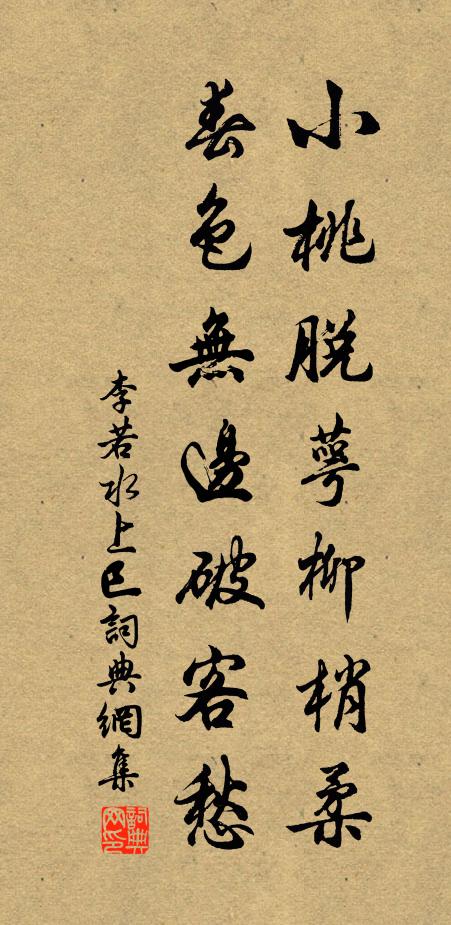 小桃脱萼柳梢柔
春色無邊破客愁
李若水上巳詞典網集
詞典网印